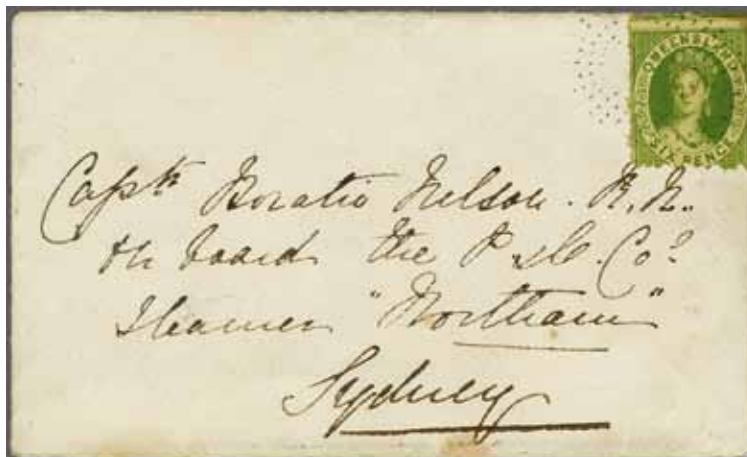 QUEENSLAND
SIX PENCE
Captn Horatio Nelson. R.N.
on board the P & O. Co's
Steamer "Northam"
Sydney